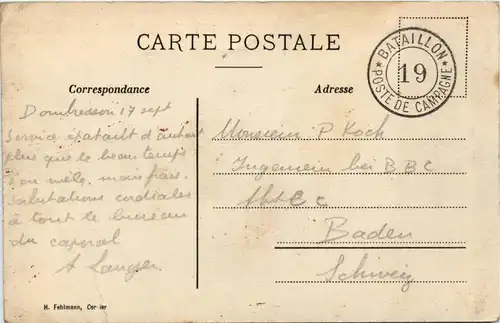 CARTE POSTALE
★ BATAILLON ★
19
POSTE DE CAMPAGNE
Correspondance
Adresse
Dombresson 17 sept
Service épatant d'autant
plus que le beau temps
s'en mêle, mais
salutations cordiales
à tout le bureau
du caporal
Monsieur P Koch
Ingenieur bei B B C
Abt
Baden
Schweiz
H. Fehlmann, Cerlier